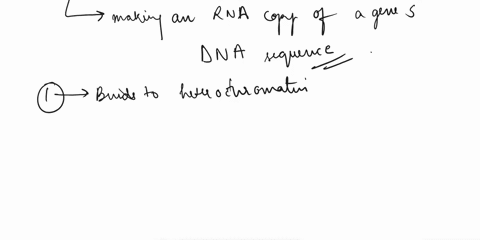 making an RNA copy of a gene s
DNA sequence.
1 Binds to heterochromatin